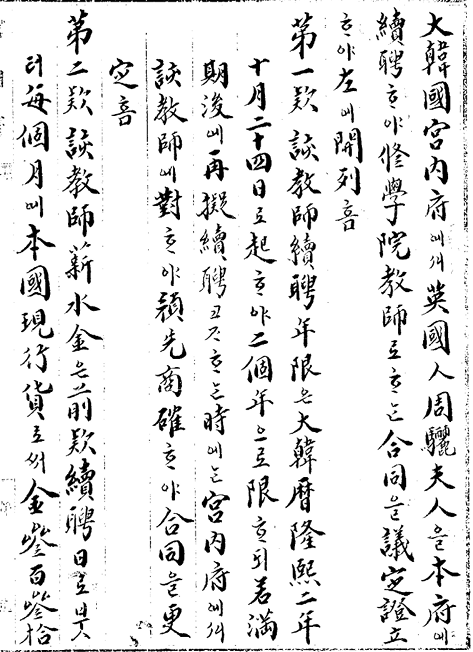 大韓國宮內府에셔英國人周驪夫人을本府에
續聘ᄒᆞ야修學院教師로ᄒᆞᄂᆞᆫ合同을議定證立
ᄒᆞ야左에開列홈
第一欵 該教師續聘年限은大韓曆隆熙二年
十月二十四日로起ᄒᆞ야二個年으로限ᄒᆞ되若滿
期後에再擬續聘코ᄌᆞᄒᆞᄂᆞᆫ時에ᄂᆞᆫ宮內府에셔
該教師에對ᄒᆞ야預先商確ᄒᆞ야合同을更
定홈
第二欵 該教師薪水金은前欵續聘日로붓
터每個月에本國現行貨로써金參百參拾